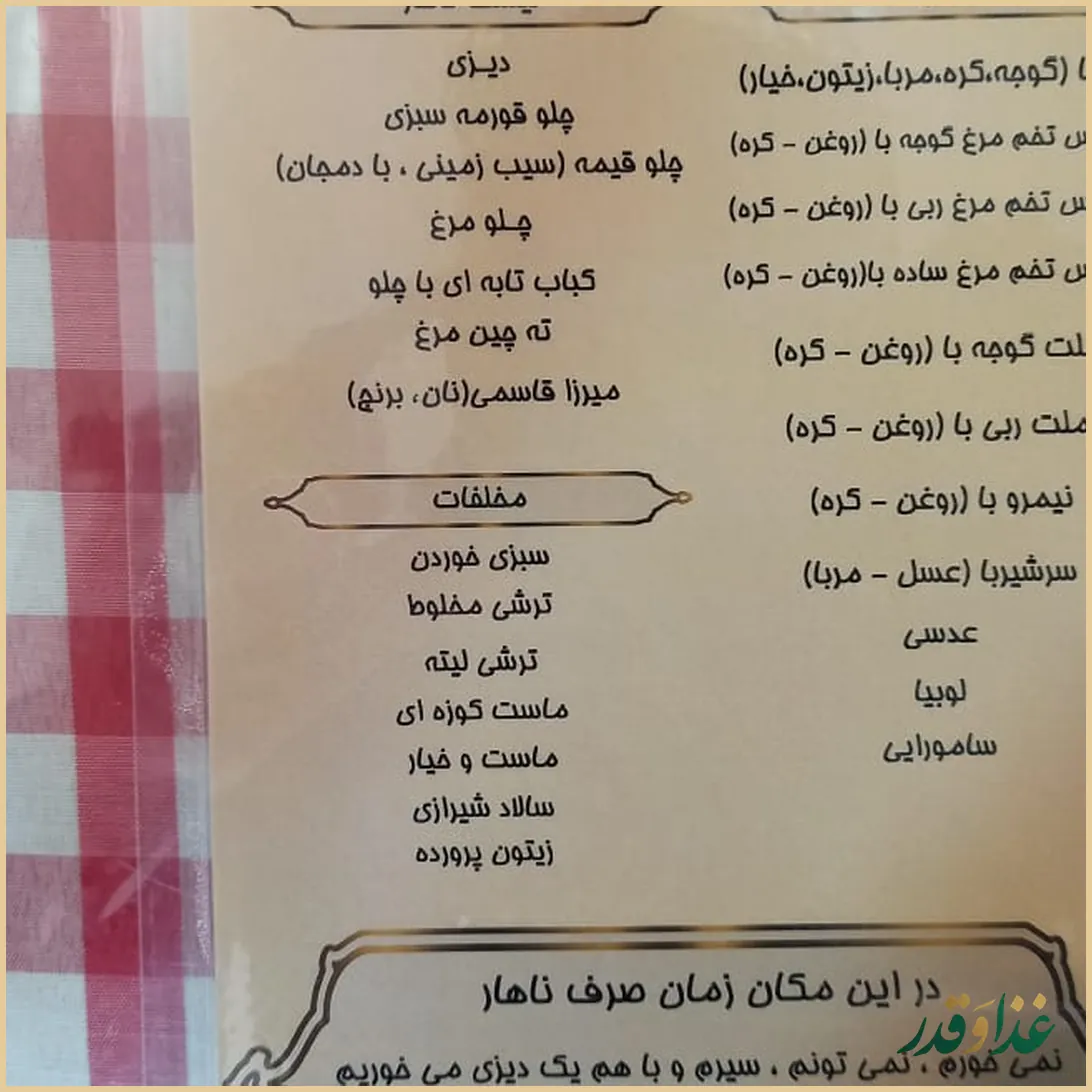 ا (گوجه،کره،مربا،زیتون،خیار)
س تخم مرغ گوجه با (روغن - کره)
س تخم مرغ ربی با (روغن - کره)
س تخم مرغ ساده با((روغن - کره)
ملت گوجه با (روغن - کره)
ملت ربی با (روغن - کره)
نیمرو با (روغن - کره)
سرشیربا (عسل - مربا)
عدسی
لوبیا
سامورایی
دیـزی
چلو قورمه سبزی
چلو قیمه (سیب زمینی ، با دمجان)
چـلو مرغ
کباب تابه ای با چلو
ته چین مرغ
میرزا قاسمی(نان، برنج)
مخلفات
سبزی خوردن
ترشی مخلوط
ترشی لیته
ماست کوزه ای
ماست و خیار
سالاد شیرازی
زیتون پرورده
در این مکان زمان صرف ناهار
نمی خورم ، نمی تونم ، سیرم و با هم یک دیزی می خوریم
غذا و قدر